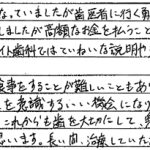 なっていましたが歯医者に行く勇
しましたが高額なお金を払うこと
イト歯科ではていねいな説明や
食事をすることが難しいこともあり
を意識するいい機会になり
これからも歯を大切にして、
思います。長い間、治療していた